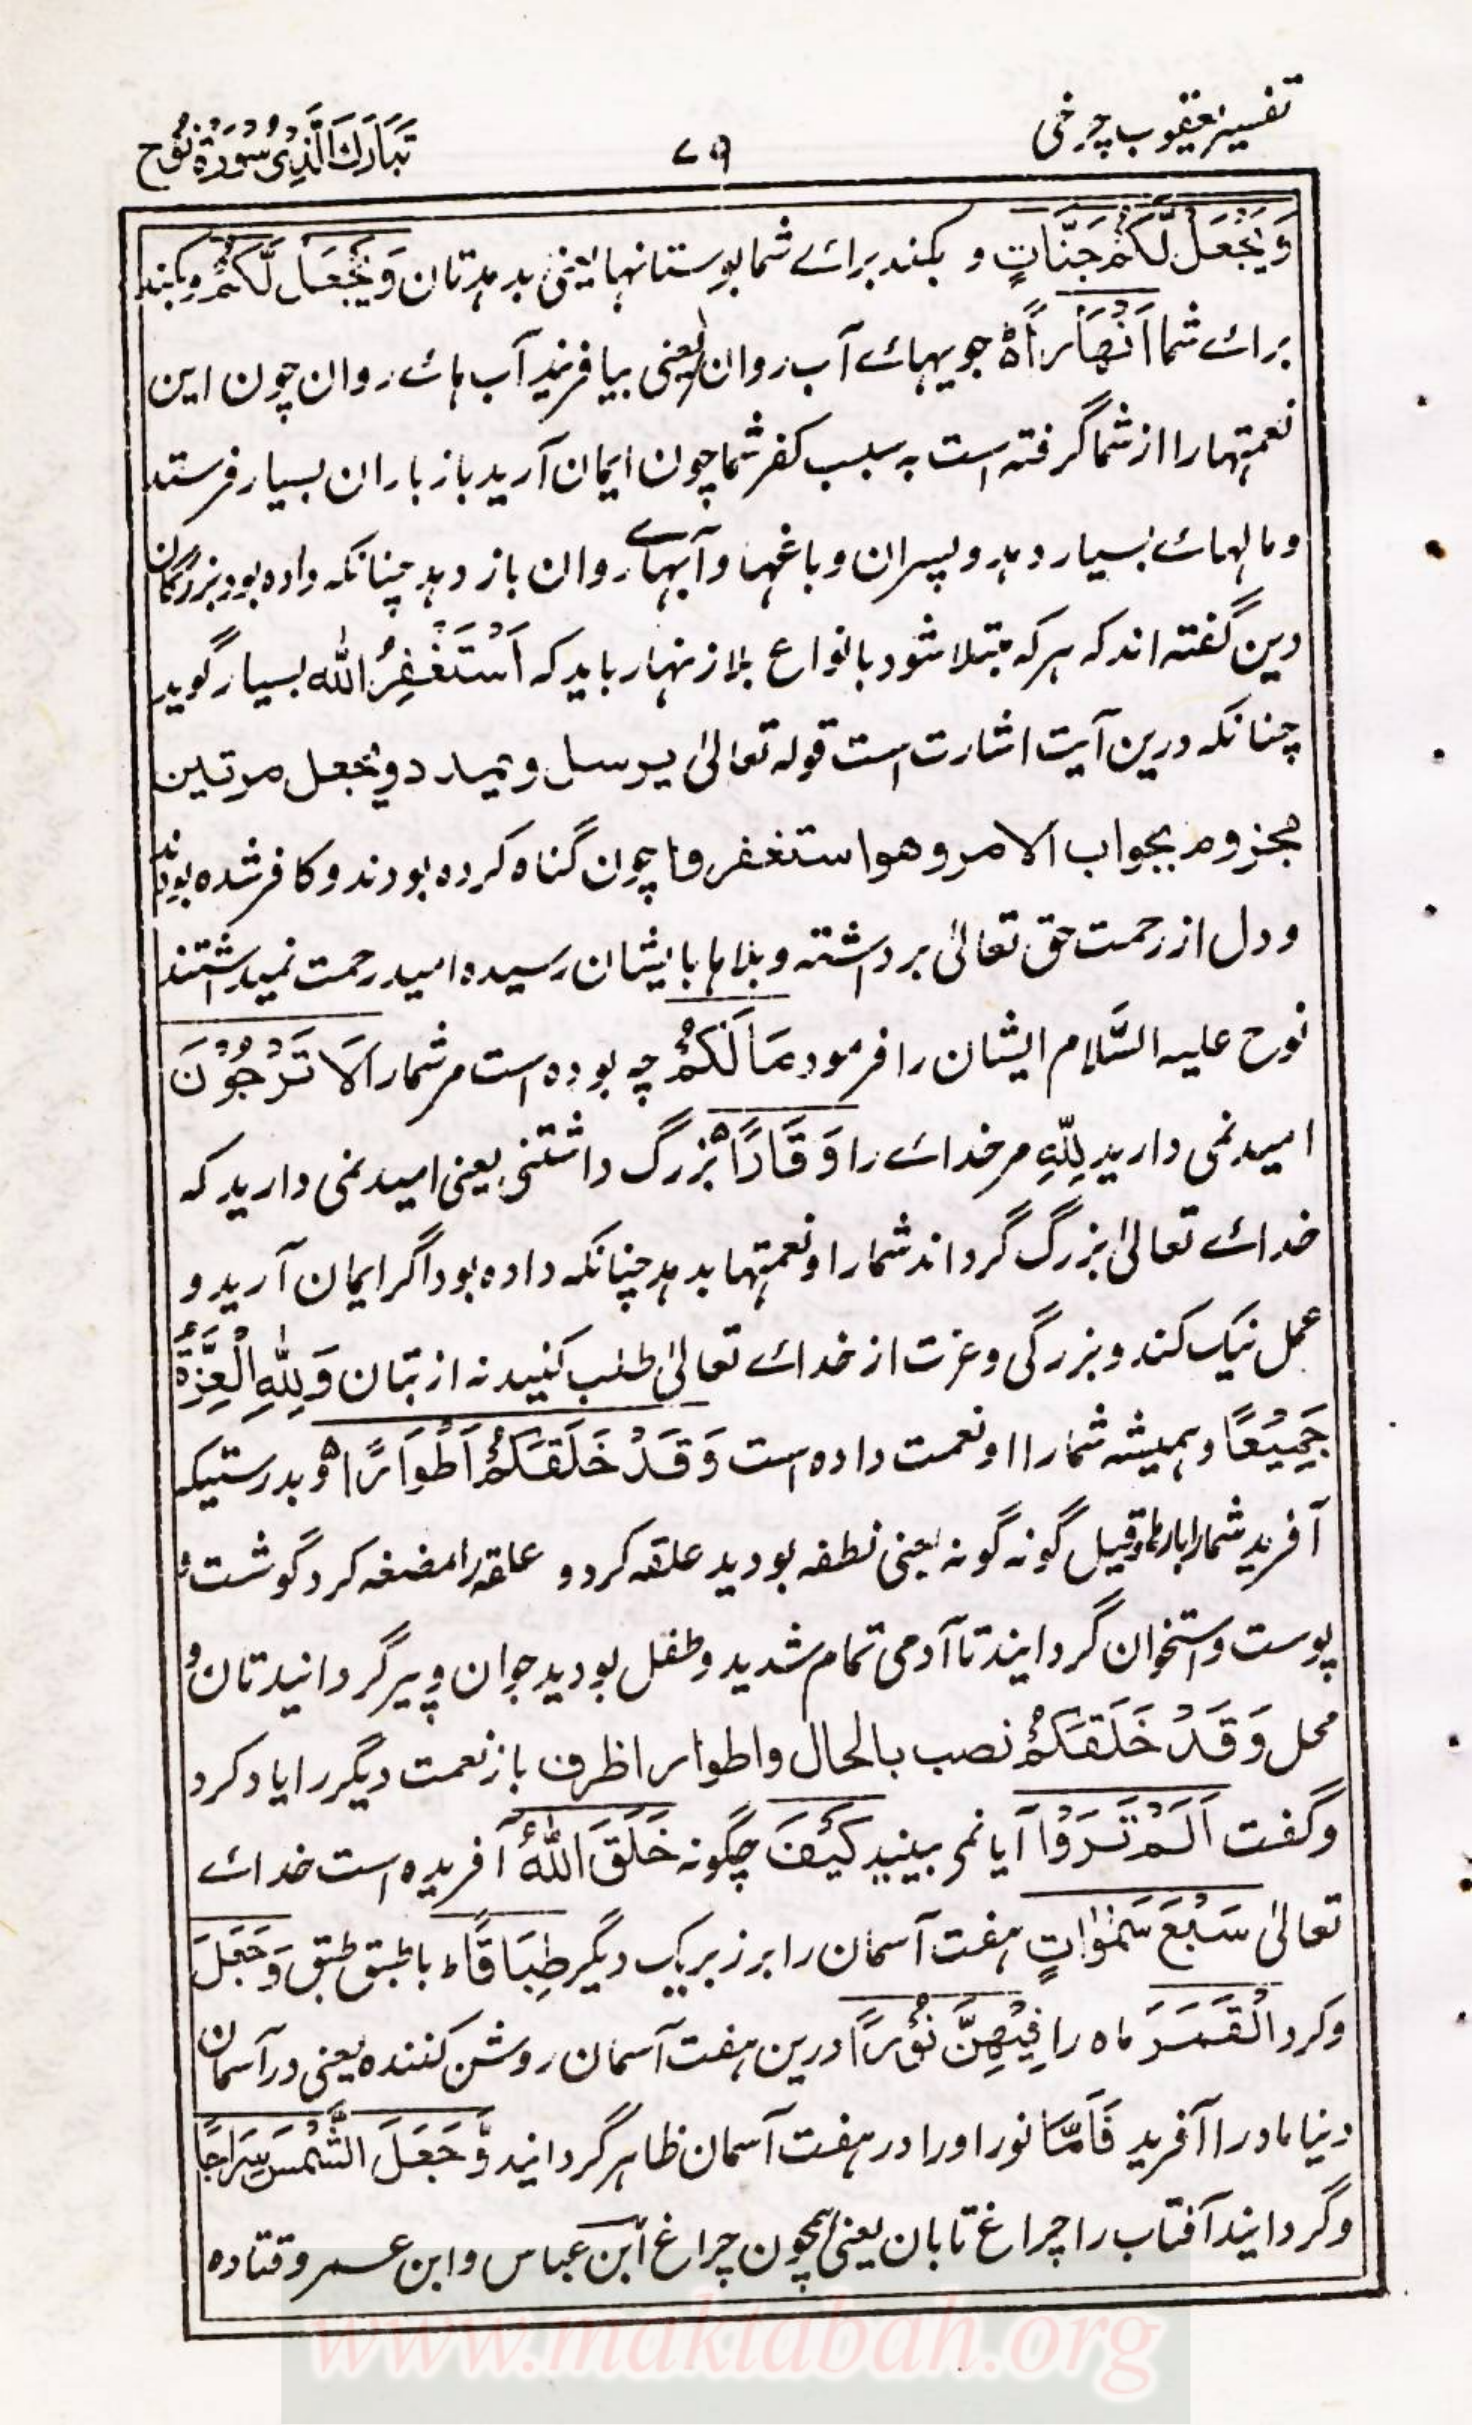 تفسیر یعقوب چرخی
۷۹
تَبَارَكَ الَّذِىْ سُوْرَةُ نُوْح
وَيَجْعَلْ لَّكُمْ جَنّٰتٍ و بکند برائے شما بوستانها یعنی بدهدتان وَيَجْعَلْ لَّكُمْ و بکند
برائے شما اَنْهَارًا۝ جویہائے آب روان یعنی بیافریند آب ہائے روان چون این
نعمتہا را از شما گرفتہ است بہ سبب کفر شما چون ایمان آرید باز باران بسیار فرستد
و مالہائے بسیار دہد و پسران و باغہا و آبہائے روان باز دہد چنانکہ دادہ بود بزرگان
دین گفتہ اند کہ ہر کہ مبتلا شود بانواع بلا زنہار باید کہ اَسْتَغْفِرُ اللّٰه بسیار گوید
چنانکہ درین آیت اشارت است قولہ تعالیٰ یرسل و یمدد و یجعل مرتین
مجزوم بجواب الامر و هو استغفروا چون گناہ کردہ بودند و کافر شدہ بودند
و دل از رحمت حق تعالیٰ برداشتہ و بلاہا بایشان رسیدہ امید رحمت نمیداشتند
نوح علیہ السَّلام ایشان را فرمود مَا لَكُمْ چہ بودہ است مر شمارا لَا تَرْجُوْنَ
امید نمی دارید لِلّٰهِ مر خدائے را وَقَارًا۝ بزرگ داشتنی یعنی امید نمی دارید کہ
خدائے تعالیٰ بزرگ گرداند شمارا و نعمتہا بدہد چنانکہ دادہ بود اگر ایمان آرید و
عمل نیک کنند و بزرگی و عزت از خدائے تعالیٰ طلب کنید نہ از بتان وَلِلّٰهِ الْعِزَّةُ
جَمِيْعًا و ہمیشہ شمارا او نعمت دادہ است وَقَدْ خَلَقَكُمْ اَطْوَارًا۝ و بدرستیکہ
آفرید شمارا بارہا و قیل گونہ گونہ یعنی نطفہ بودید علقہ کرد و علقہ را مضغہ کرد گوشت و
پوست و استخوان گردانید تا آدمی تمام شدید و طفل بودید جوان و پیر گردانیدتان و
محل وَقَدْ خَلَقَكُمْ نصب بالحال و اطوارا ظرف باز نعمت دیگر را یاد کرد
و گفت اَلَمْ تَرَوْا آیا نمی بینید كَيْفَ چگونہ خَلَقَ اللّٰهُ آفریدہ است خدائے
تعالیٰ سَبْعَ سَمٰوٰاتٍ ہفت آسمان را بر زبر یک دیگر طِبَاقًا ط با طبق طبق وَجَعَلَ
و کرد الْقَمَرَ ماہ را فِيْهِنَّ نُوْرًا درین ہفت آسمان روشن کنندہ یعنی در آسمان
دنیا ماہ را آفرید فَاَمَّا نور او را در ہفت آسمان ظاہر گردانید وَّجَعَلَ الشَّمْسَ سِرَاجًا
و گردانید آفتاب را چراغ تابان یعنی ہمچون چراغ ابن عباس و ابن عمر و قتادہ
www.maktabah.org